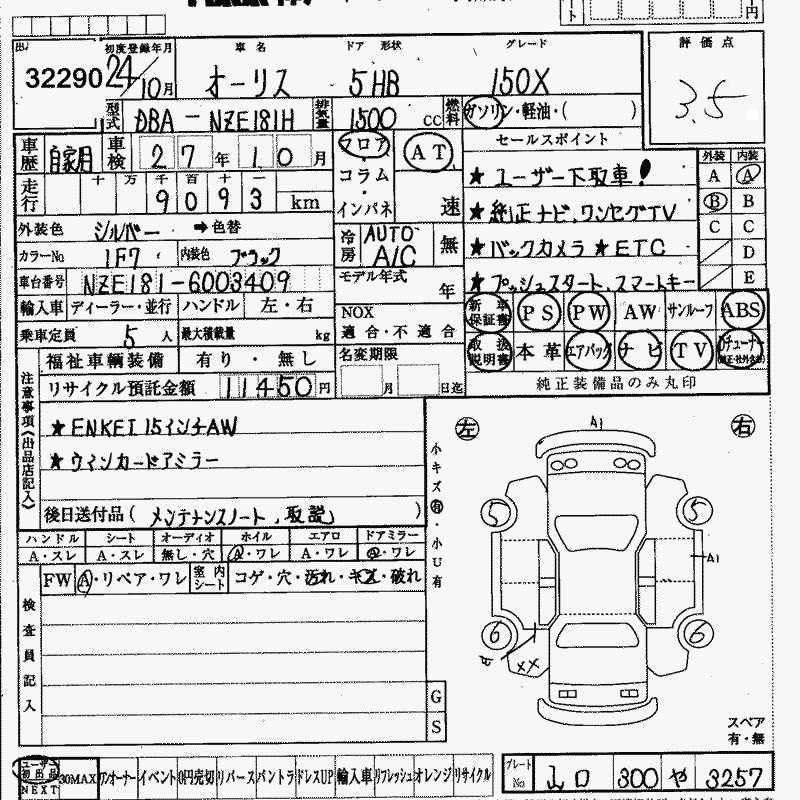 出 初度登録年月 車名 ドア 形状 グレード 評価点
32290 24/10月 オーリス 5HB 150X 3.5
型式 DBA-NZE181H 排気量 1500 CC 燃料 ガソリン・軽油・( )
車歴 自家用 車検 27年10月 フロア・コラム・インパネ AT 速 セールスポイント 外装 内装
走行 十 万 千 百 十 一 9093 km ★ユーザー下取車! A A
外装色 シルバー ➡色替 ★純正ナビ.ワンセグTV B B
カラーNo 1F7 内装色 ブラック 冷房 AUTO A/C 無 ★バックカメラ ★ETC C C
車台番号 NZE181-6003409 モデル年式 年 ★プッシュスタート.スマートキー D
E
輸入車 ディーラー・並行 ハンドル 左・右 NOX 新車保証書 PS PW AW サンルーフ ABS
乗車定員 5人 最大積載量 kg 適合・不適合 取扱説明書 本革 エアバッグ ナビ TV
福祉車輌装備 有り・無し 名変期限 純正装備品のみ丸印
リサイクル預託金額 11450円 月 日迄
注意事項(出品店記入)
★ENKEI 15インチAW
★ウィンカードアミラー
後日送付品( メンテナンスノート、取説 )
小キズ有・小U有
左 A1 右
5 5
A1
6 6
XX
ハンドル シート オーディオ ホイル エアロ ドアミラー
A・スレ A・スレ 無し・穴 A・ワレ A・ワレ A・ワレ
FW A・リペア・ワレ 室内シート コゲ・穴・汚れ・キズ・破れ
検査員記入
G
S
スペア
有・無
ユーザー初出品 NEXT 30MAX ワンオーナー イベント 0円売切 リバース バントラ ドレスUP 輸入車 リフレッシュ オレンジ リサイクル
プレートNo 山口 300 や 3257